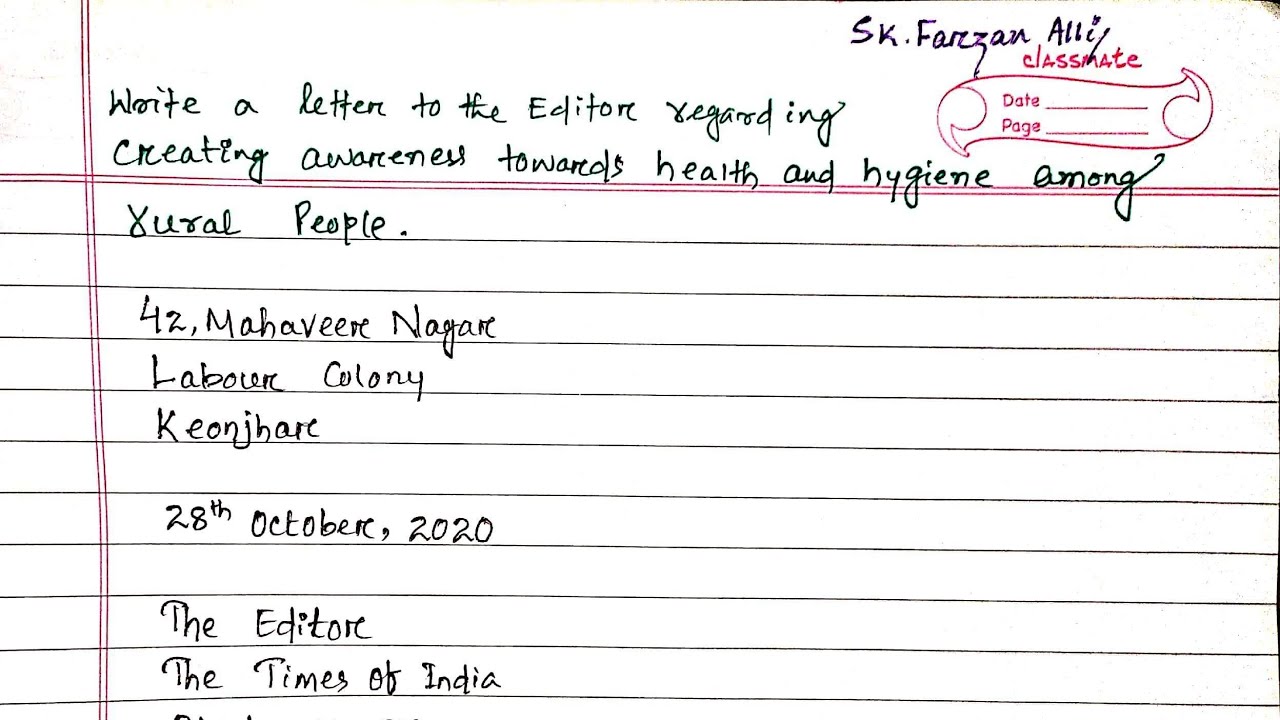 SK. Farzan Alli
classmate
Date
Page
Write a letter to the Editor regarding
creating awareness towards health and hygiene among
rural People.
42, Mahaveer Nagar
Labour Colony
Keonjhar
28th October, 2020
The Editor
The Times of India